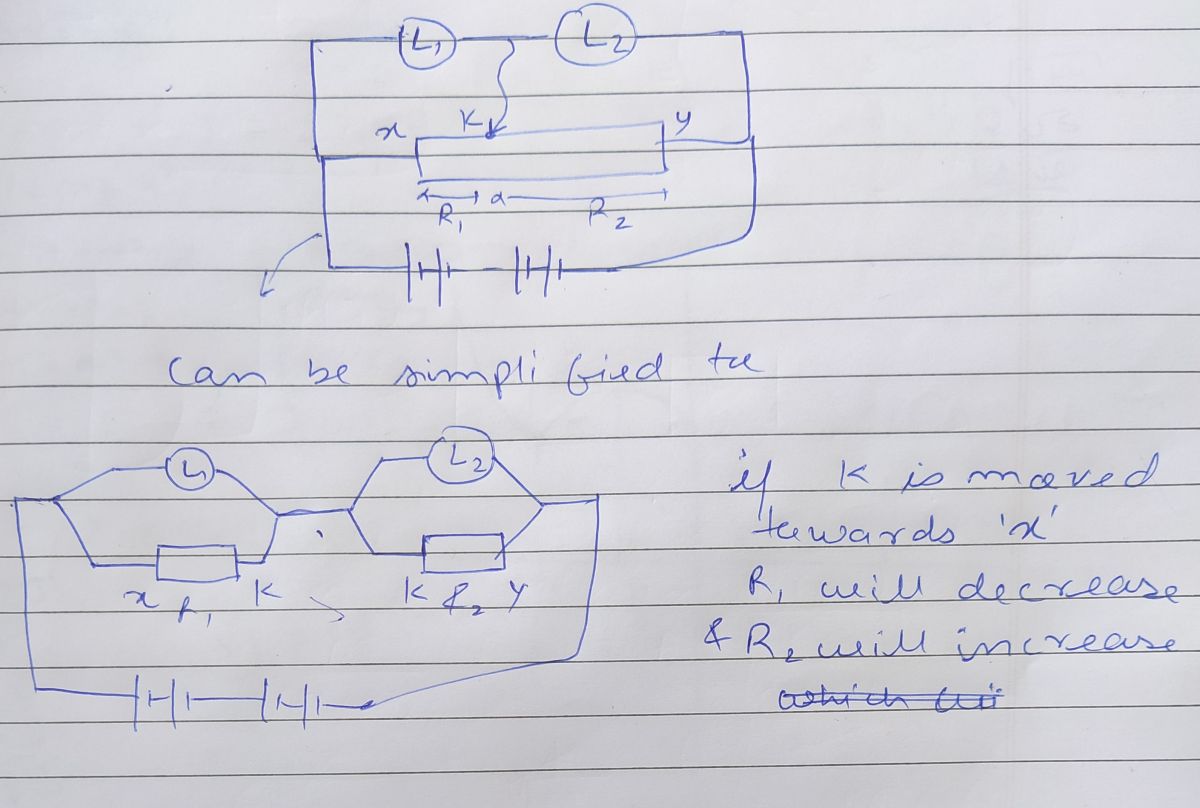 L1 L2
x K y
R1 R2
Can be simplified to
L1 L2
x R1 K K R2 Y
if K is moved
towards 'x'
R1 will decrease
& R2 will increase